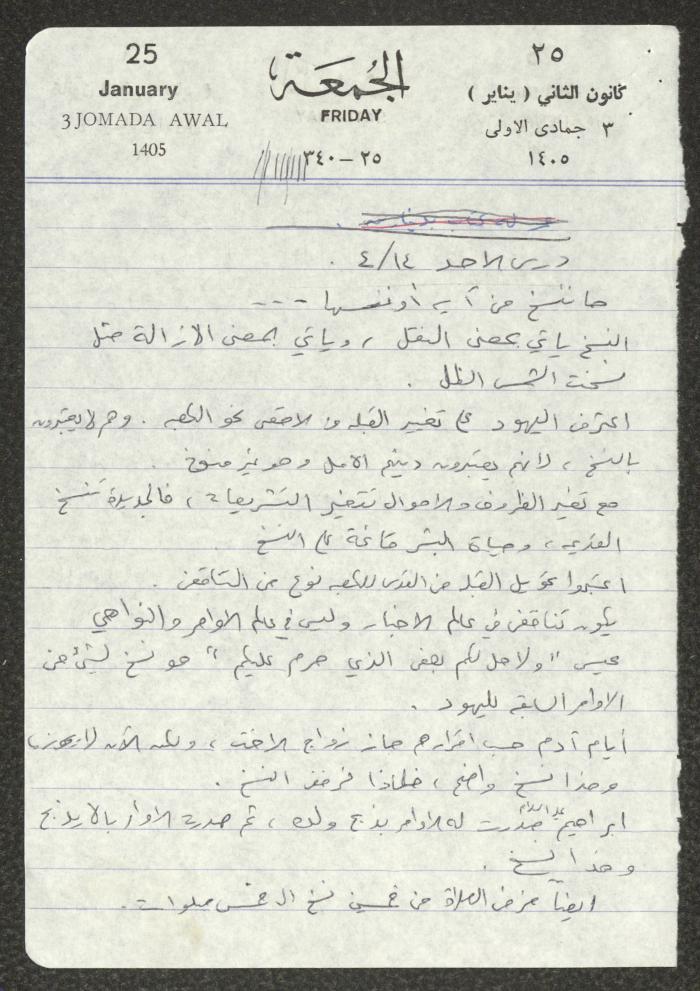 25
January
3 JOMADA AWAL
1405
الجُمعَة
FRIDAY
٢٥ – ٣٤٠
٢٥
كانون الثاني ( يناير )
٣ جمادى الاولى
١٤٠٥
درس الاحد ٤/١٤ .
ما ننسخ من آية أو ننسها ---
النسخ ياتي بمعنى النقل ، وياتي بمعنى الازالة مثل
نسخت الشمس الظل .
اعترض اليهود على تغيير القبله من الاقصى نحو الكعبه . وهم لا يعتبرون
بالنسخ ، لانهم يعتبرون دينهم الاصل وهو غير منسوخ .
مع تغير الظروف والاحوال تتغير التشريعات ، فالجديدة تنسخ
القديمه ، وحياة البشر قائمة على النسخ
اعتبروا تحويل القبله من القدس للكعبه نوع من التناقض .
يكون تناقض في عالم الاخبار وليس في عالم الاوامر والنواهي
عيسى "ولاحل لكم بعض الذي حرم عليكم" هو نسخ لشئ من
الاوامر السابقه لليهود .
أيام آدم حسب اقرارهم جاز زواج الاخت ، ولكن الآن لا يجوز
وهذا نسخ واضح ، فلماذا نرفض النسخ .
ابراهيم عليه السلام صدرت له الاوامر بذبح ولده ، ثم صدرت الاوامر بالا يذبح
وهذا نسخ .
ايضاً فرض الصلاة من خمسين نسخ الى خمس صلوات .